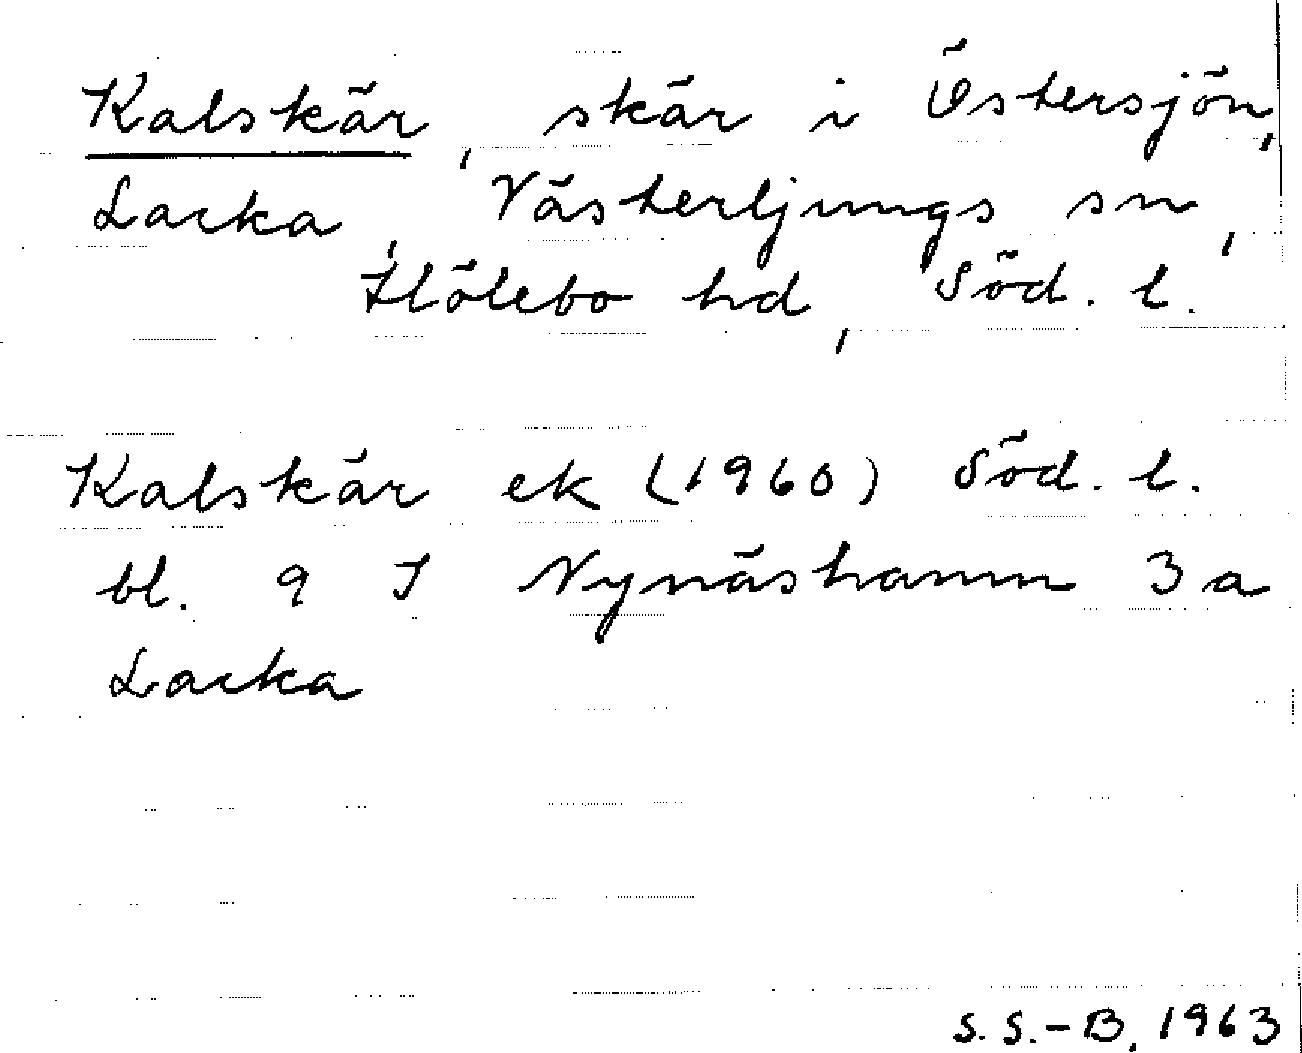 Kalskär, skär i Östersjön,
Lacka, Västerljungs sn,
Hölebo hd, Söd. l.
Kalskär ek (1960) Söd. l.
bl. 9 I Nynäshamn 3 a
Lacka
S. S.-B. 1963